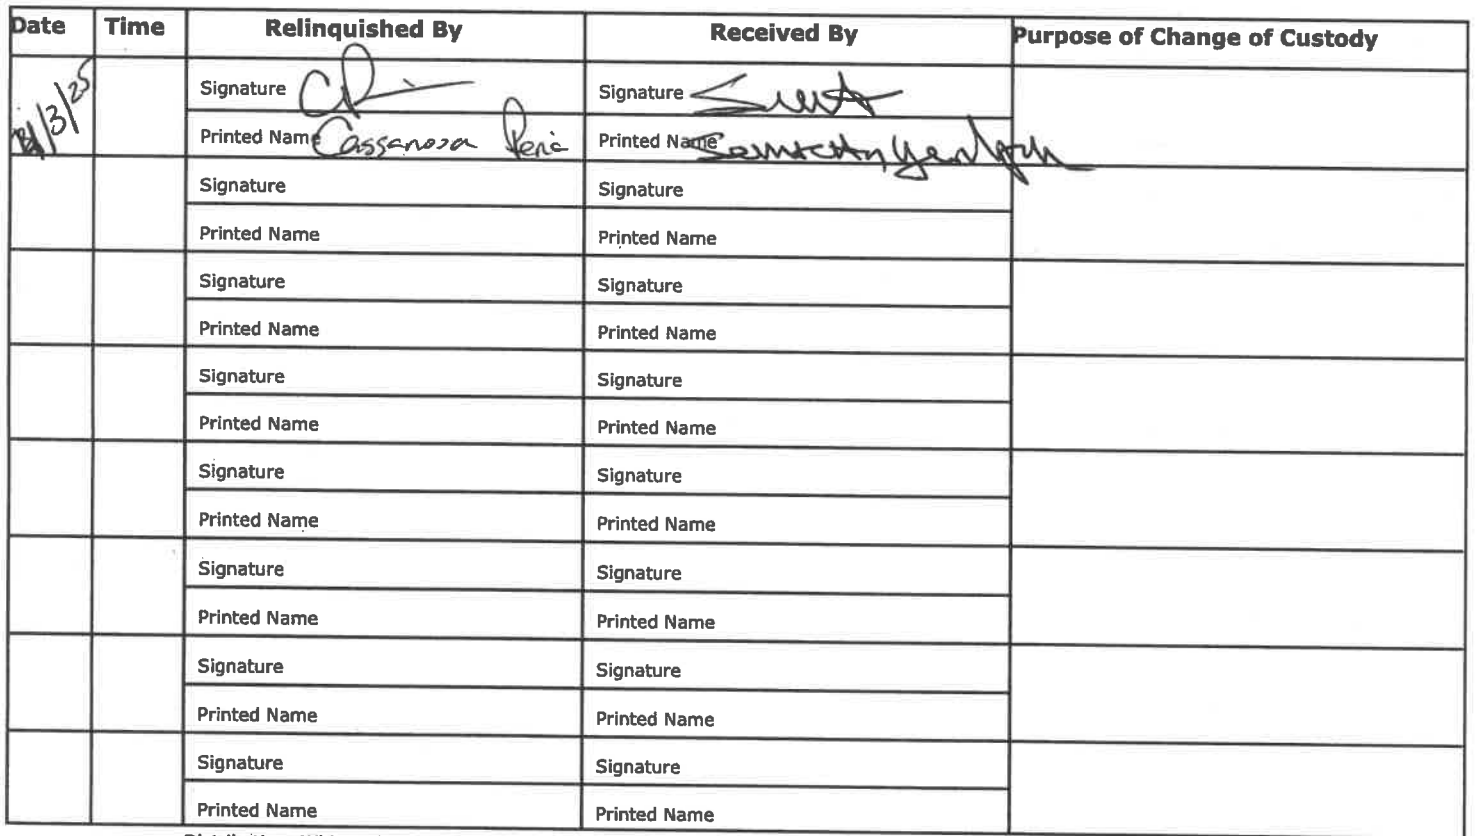 Date Time Relinquished By Received By Purpose of Change of Custody
/3/25
Signature Signature
Printed Name Printed Name
Signature Signature
Printed Name Printed Name
Signature Signature
Printed Name Printed Name
Signature Signature
Printed Name Printed Name
Signature Signature
Printed Name Printed Name
Signature Signature
Printed Name Printed Name
Signature Signature
Printed Name Printed Name
Signature Signature
Printed Name Printed Name